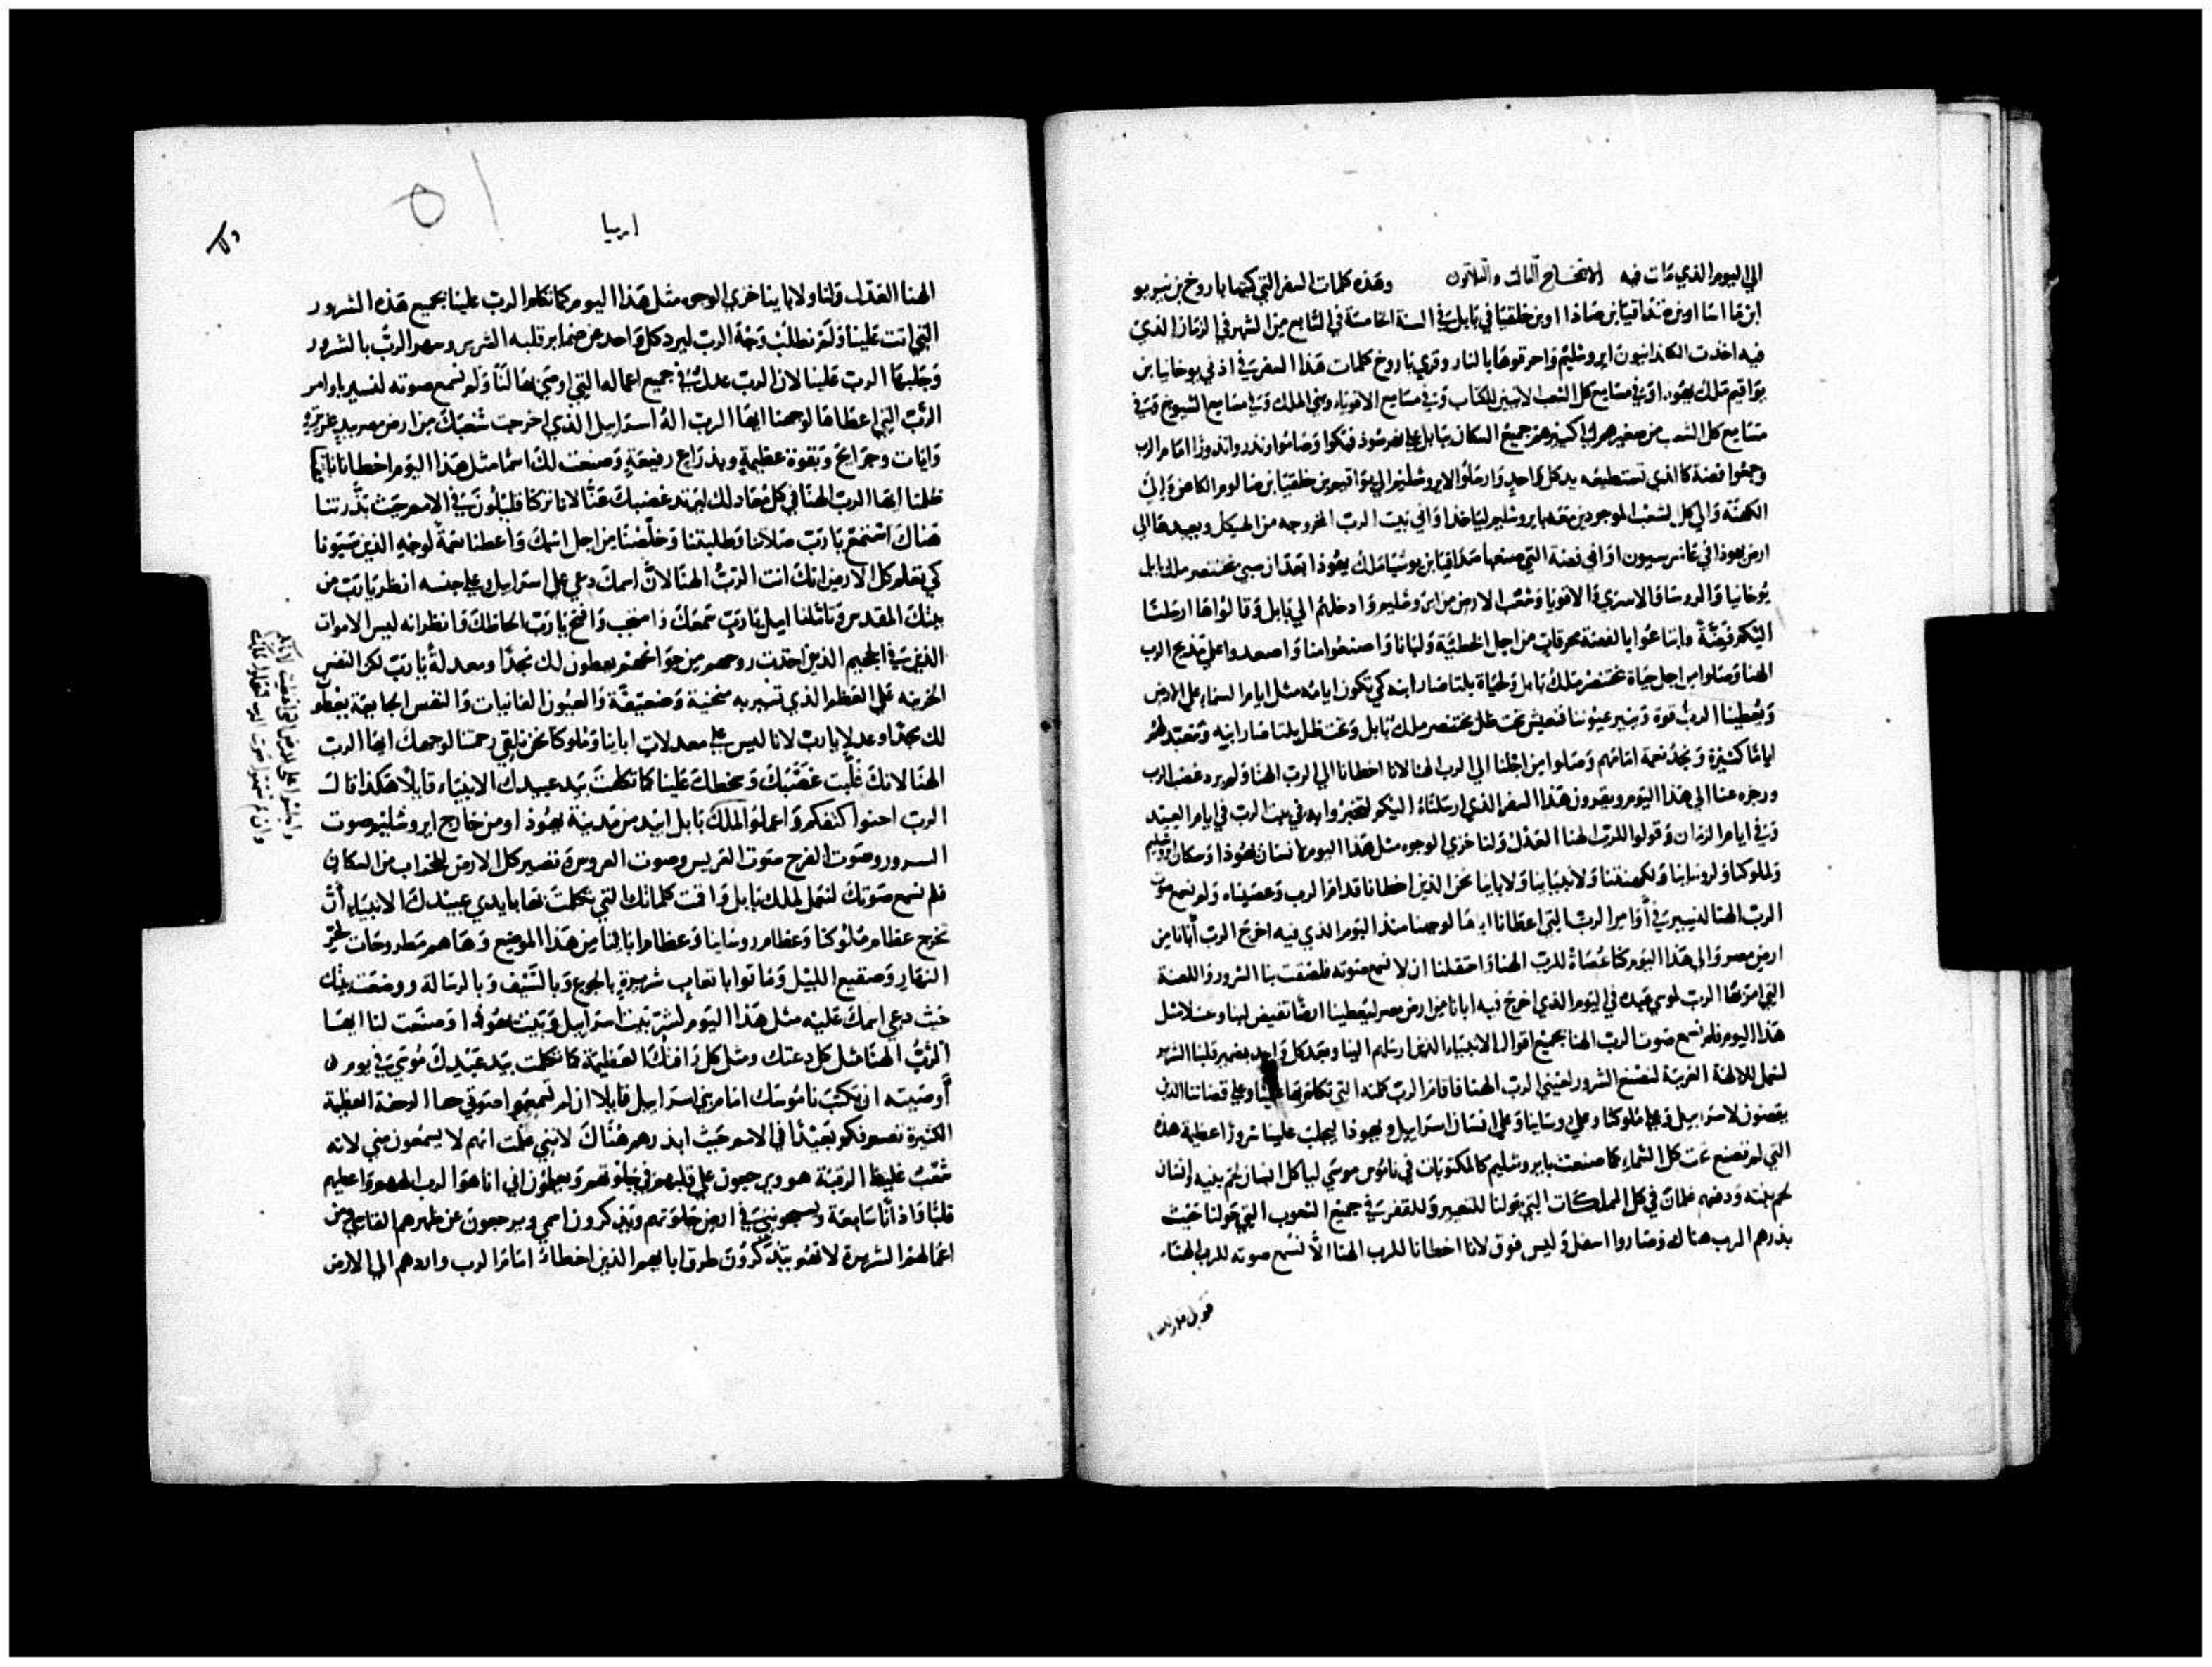 الي اليوم الذي مات فيه الافتتاح الثالث والثلاثون وهذه كلمات السفر التي كتبها باروخ بن نيريو
ابن ماسا اوبن صداقيا بن صاذا اوبن خلقيا في بابل في السنة الخامسة في السابع من الشهر في الزمان الذي
فيه اخذت الكلدانيون ايروشليم واحرقوها بالنار وقري باروخ كلمات هذا السفر في اذني يوخانيا بن
يواقيم ملك يهوذا وفي مسامع كل الشعب الاتيين للكتاب وفي مسامع الاقوياء وبني الملك وفي مسامع الشيوخ وفي
مسامع كل الشعب من صغيرهم الي كبيرهم جميع السكان ببابل علي نهر سود فبكوا وصاموا ونذروا نذورا امام الرب
وجمعوا فضة كالذي تستطيعه يد كل واحد وارسلوا لايروشليم الي يواقيم بن خلقيا بن صالوم الكاهن والي
الكهنة والي كل الشعب الموجودين معه بايروشليم ليأخذ اواني بيت الرب المخروجه من الهيكل ويعيدها الي
ارض يهوذا في عاشر سيون اواني فضة التي صنعها صداقيا بن يوشيا ملك يهوذا بعد ان سبي بختنصر ملك بابل
يوخانيا والروسا والاسري والاقويا وشعب الارض من ايروشليم وادخلهم الي بابل وقالوا ها ارسلنا
اليكم فضة وابتاعوا بالفضة محرقات من اجل الخطية ولبانا واصنعوا منا واصعدوا علي مذبح الرب
الهنا وصلوا من اجل حياة بختنصر ملك بابل ولحياة بلتاصار ابنه كي تكون ايامه مثل ايام السماء علي الارض
ويعطينا الرب قوة وينير عيوننا فنعيش تحت ظل بختنصر ملك بابل وتحت ظل بلتاصار ابنه ونتعبد لهم
اياما كثيرة ونجد نعمة امامهم وصلوا من اجلنا الي الرب الهنا لانا اخطانا الي الرب الهنا ولم يرد غضب الرب
ورجزه عنا الي هذا اليوم ويقرون هذا السفر الذي ارسلناه اليكم لتخبروا به في بيت الرب في ايام العيد
وفي ايام الزمان وقولوا للرب الهنا العدل ولنا خزي الوجوه مثل هذا اليوم لانسان يهوذا وسكان ايروشليم
ولملوكنا ولروسائنا ولكهنتنا ولانبيائنا ولابائنا نحن الذين اخطانا قدام الرب وعصيناه ولم نسمع صوت
الرب الهنا لنسير في أوامر الرب التي اعطانا اياها لوجهنا منذ اليوم الذي فيه اخرج الرب أبانا من
ارض مصر والي هذا اليوم كنا عصاة للرب الهنا واحتفلنا ان لا نسمع صوته فلصقت بنا الشرور واللعنة
التي امر بها الرب لموسي عبده في اليوم الذي اخرج فيه ابانا من ارض مصر ليعطينا ارضا تفيض لبنا وعسلا مثل
هذا اليوم فلم نسمع صوت الرب الهنا بجميع اقوال الانبياء الذين ارسلهم الينا ومضي كل واحد بضمير قلبنا الشرير
لنعمل للالهة الغريبة لنصنع الشرور لعيني الرب الهنا فاقام الرب كلمته التي تكلم بها علينا وعلي قضاتنا الذين
يقضون لاسراييل وعلي ملوكنا وعلي روسائنا وعلي انسان اسراييل ويهوذا ليجلب علينا شرورا عظيمة هذه
التي لم تصنع تحت كل السماء كما صنعت بايروشليم كالمكتوبات في ناموس موسي لياكل انسان لحم بنيه وانسان
لحم بنته ودفعهم غلمان في كل المملكات التي حولنا للتعيير وللقفر في جميع الشعوب التي حولنا حيث
بذرهم الرب هناك وصاروا اسفل وليس فوق لانا اخطانا للرب الهنا الا نسمع صوته للرب الهنا
ارميا
الهنا العدل ولنا ولاباينا خزي الوجوه مثل هذا اليوم كما تكلم الرب علينا بجميع هذه الشرور
التي اتت علينا ولم نطلب وجه الرب ليرد كل واحد عن ضماير قلبه الشرير وسهر الرب بالشرور
وجلبها الرب علينا لان الرب عدل في جميع اعماله التي اوصي بها لنا ولم نسمع صوته لنسير باوامر
الرب التي اعطاها لوجهنا ايها الرب اله اسراييل الذي اخرجت شعبك من ارض مصر بيد عزيزة
وايات وجرايح وبقوة عظيمة وبذراع رفيعة وصنعت لك اسما مثل هذا اليوم اخطانا نافقنا
ظلمنا ايها الرب الهنا في كل معادلك ليرتد غضبك عنا لانا تركنا قليلون في الامم حيث بذرتنا
هناك استمع يا رب صلاتنا وطلبتنا وخلصنا من اجل اسمك واعطنا نعمة لوجه الذين سبونا
كي تعلم كل الارض انك انت الرب الهنا لان اسمك دعي علي اسراييل وعلي جنسه انظر يا رب من
بيتك المقدس وتاملنا اميل يا رب سمعك واستجب وافتح يا رب الحاظك وانظر انه ليس الاموات
الذين في الجحيم الذين اخذت روحهم من جوانحهم يعطون لك مجدا ومعدلة يا رب لكن النفس
الحزينه علي العظم الذي تسير به منحنية وضعيفة والعيون الفانيات والنفس الجايعة يعطوا
لك مجدا وعدلا يا رب لانا ليس علي معدلات اباينا وملوكنا نحن نلقي رحمتنا لوجهك ايها الرب
الهنا لانك جلبت غضبك وسخطك علينا كما تكلمت بيد عبيدك الانبياء قايلا هكذا قال
الرب احنوا كتفكم واعملوا لملك بابل ابيد من مدينة يهوذا ومن خارج ايروشليم صوت
السرور وصوت الفرح صوت العريس وصوت العروس وتصير كل الارض للخراب من السكان
فلم نسمع صوتك لنعمل لملك بابل واقمت كلماتك التي تكلمت بها بايدي عبيدك الانبياء أن
تخرج عظام ملوكنا وعظام روسائنا وعظام ابائنا من هذا الموضع وها هم مطروحات لحر
النهار وصقيع الليل وماتوا باتعاب شريرة بالجوع وبالسيف وبالرسالة ووضعت بيتك
حيث دعي اسمك عليه مثل هذا اليوم لشر بيت اسراييل وبيت يهوذا وصنعت لنا ايها
الرب الهنا مثل كل دعتك ومثل كل رافتك العظيمة كما تكلمت بيد عبدك موسي في يوم
أوصيته ان يكتب ناموسك امام بني اسراييل قايلا ان لم تسمعوا صوتي هذا الوحدة العظيمة
الكثيرة تصير فيكم بعيدا في الامم حيث ابذرهم هناك لانني علمت انهم لا يسمعون مني لانه
شعب غليظ الرقبة هو ويرجعون علي قلبهم في جلوتهم ويعلمون اني انا هو الرب الههم واعطيهم
قلبا واذانا سامعة ويسبحونني في ارض جلوتهم ويذكرون اسمي ويرجعون عن ظهرهم القاسي ومن
اعمالهم الشريرة لانهم يتذكرون طرق ابايهم الذين اخطاوا امام الرب واردهم الي الارض